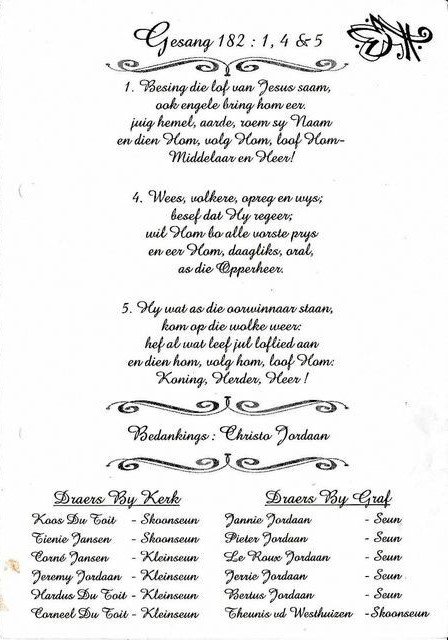 Gesang 182 : 1, 4 & 5
1. Besing die lof van Jesus saam,
ook engele bring hom eer.
juig hemel, aarde, roem sy Naam
en dien Hom, volg Hom, loof Hom-
Middelaar en Heer!
4. Wees, volkere, opreg en wys;
besef dat Hy regeer;
wil Hom bo alle vorste prys
en eer Hom, daagliks, oral,
as die Opperheer.
5. Hy wat as die oorwinnaar staan,
kom op die wolke weer:
hef al wat leef jul loflied aan
en dien hom, volg hom, loof Hom:
Koning, Herder, Heer !
Bedankings : Christo Jordaan
Draers By Kerk
Koos Du Toit - Skoonseun
Tienie Jansen - Skoonseun
Corné Jansen - Kleinseun
Jeremy Jordaan - Kleinseun
Hardus Du Toit - Kleinseun
Corneel Du Toit - Kleinseun
Draers By Graf
Jannie Jordaan - Seun
Pieter Jordaan - Seun
Le Roux Jordaan - Seun
Jerrie Jordaan - Seun
Bertus Jordaan - Seun
Theunis vd Westhuizen -Skoonseun